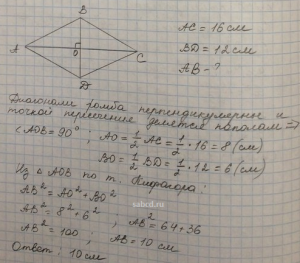 B
A
O
C
D
AC = 16 см
BD = 12 см
AB - ?
Диагонали ромба перпендикулярны и
точкой пересечения делятся пополам =>
∠AOB = 90°, AO = 1/2 AC = 1/2 · 16 = 8 (см)
BO = 1/2 BD = 1/2 · 12 = 6 (см)
Из △ AOB по т. Пифагора:
AB² = AO² + BO²
AB² = 8² + 6², AB² = 64 + 36
AB² = 100, AB = 10 см
Ответ: 10 см
sabcd.ru